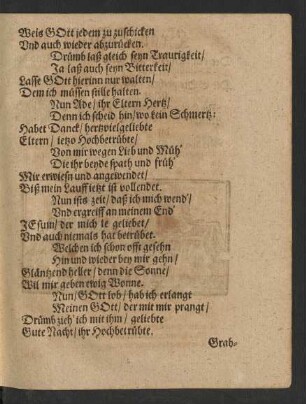 Weis GOtt jedem zu zuschicken
Vnd auch wieder abzurücken.
Drümb laß gleich seyn Traurigkeit/
Ja laß auch seyn Bitterkeit/
Lasse GOtt hierinn nur walten/
Dem ich müssen stille halten.
Nun Ade/ ihr Eltern Hertz/
Denn ich scheid hin/ wo kein Schmertz:
Habet Danck/ hertzvielgeliebte
Eltern/ ietzo Hochbetrübte/
Von mir wegen Lieb und Müh'
Die ihr beyde spath und früh'
Mir erwiesn und angewendet/
Biß mein Lauff ietzt ist vollendet.
Nun ists zeit/ daß ich mich wend'/
Vnd ergreiff an meinem End'
JEsum/ der mich ie geliebet/
Vnd auch niemals hat betrübet.
Welchen ich schon offt gesehn
Hin und wieder bey mir gehn/
Gläntzend heller/ denn die Sonne/
Wil mir geben ewig Wonne.
Nun/ GOtt lob/ hab ich erlangt
Meinen GOtt/ der mit mir prangt/
Drümb zieh' ich mit ihm/ geliebte
Gute Nacht/ ihr Hochbetrübte.
Grab-